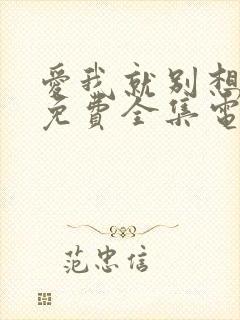 愛我就别想
免費全集電
范忠信